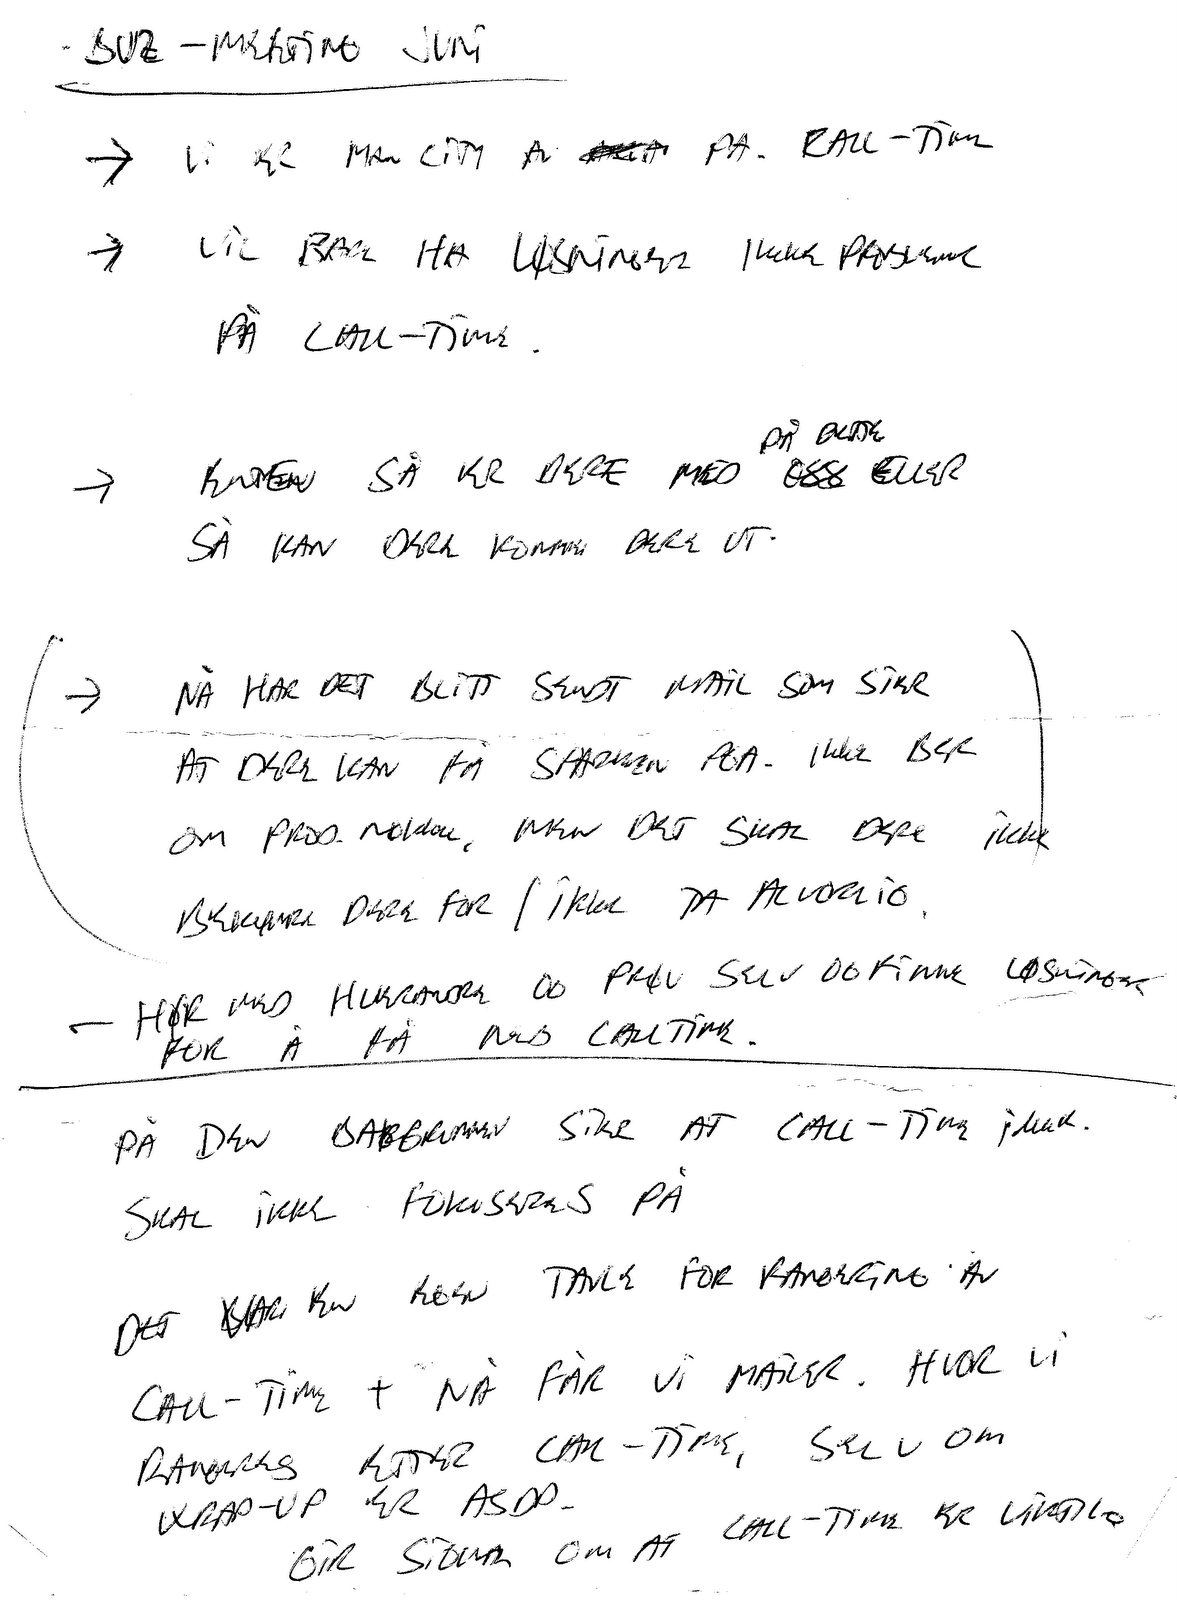 BUZ-MEETING JUNI
→ VI ER MAN CITY AV PÅ. CALL-TIME
→ VIL BARE HA LØSNINGER IKKE PROBLEME
PÅ CALL-TIME.
PÅ DETTE
→ ENTEN SÅ ER DERE MED ELLER
SÅ KAN DERE KOMME DERE UT.
→ NÅ HAR DET BLITT SENDT MAIL SOM SIER
AT DERE KAN FÅ SPARKEN PGA. IKKE BER
OM PROD. MEN DET SKAL DERE IKKE
BEKYMRE DERE FOR / IKKE TA ALVORLIG.
- HØR MED HVERANDRE OG PRØV SELV OG FINNE LØSNINGER
FOR Å FÅ NED CALLTIME.
PÅ DEN SIER AT CALL-TIME IKKE.
SKAL IKKE FOKUSERES PÅ
DET VAR EN EGEN TAVLE FOR RANGERING AV
CALL-TIME + NÅ FÅR VI MAILER. HVOR VI
RANGERES ETTER CALL-TIME, SELV OM
WRAP-UP ER
GIR SIGNAL OM AT CALL-TIME ER VIKTIG